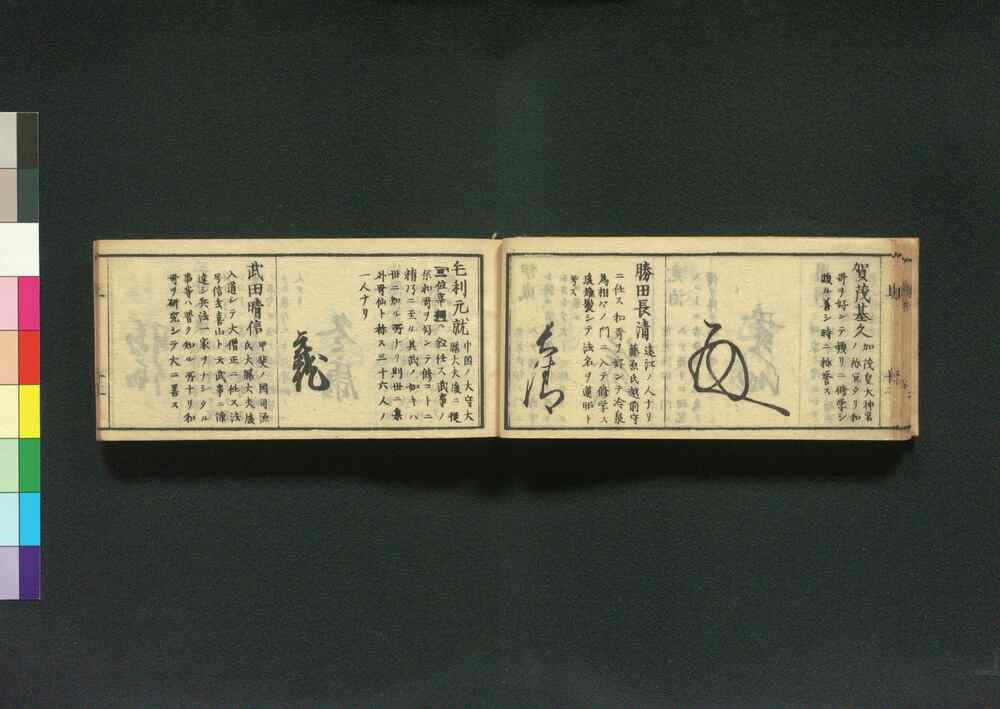 賀茂基久 加茂皇大神宮
ノ祢宜タリ和
哥ヲ好シテ頻リニ修学シ
勝田長清 遠江ノ人ナリ
藤原氏越前守
ニ仕ス和哥ヲ好シテ冷泉
為相卿ノ門ニ入テ修学ス
後薙髪シテ法名ヲ蓮昭ト
号ス
長清
毛利元就 中国ノ大守大
膳大夫後ニ従
三位宰相ニ叙任ス武事ノ
余和哥ヲ好シテ修コトニ
精巧ニ至ル其武ノ如キハ
世ニ知ル所ナリ別世ニ集
外哥仙ト称ス三十六人ノ
一人ナリ
武田晴信 甲斐ノ国司源
氏大膳大夫後
入道シテ大僧正ニ任ス法
号信玄喜山ト云武事ニ深
達シ兵法一家ヲナシタル
事等ハ普ク知ル所ナリ和
哥ヲ研究シテ大ニ善ス